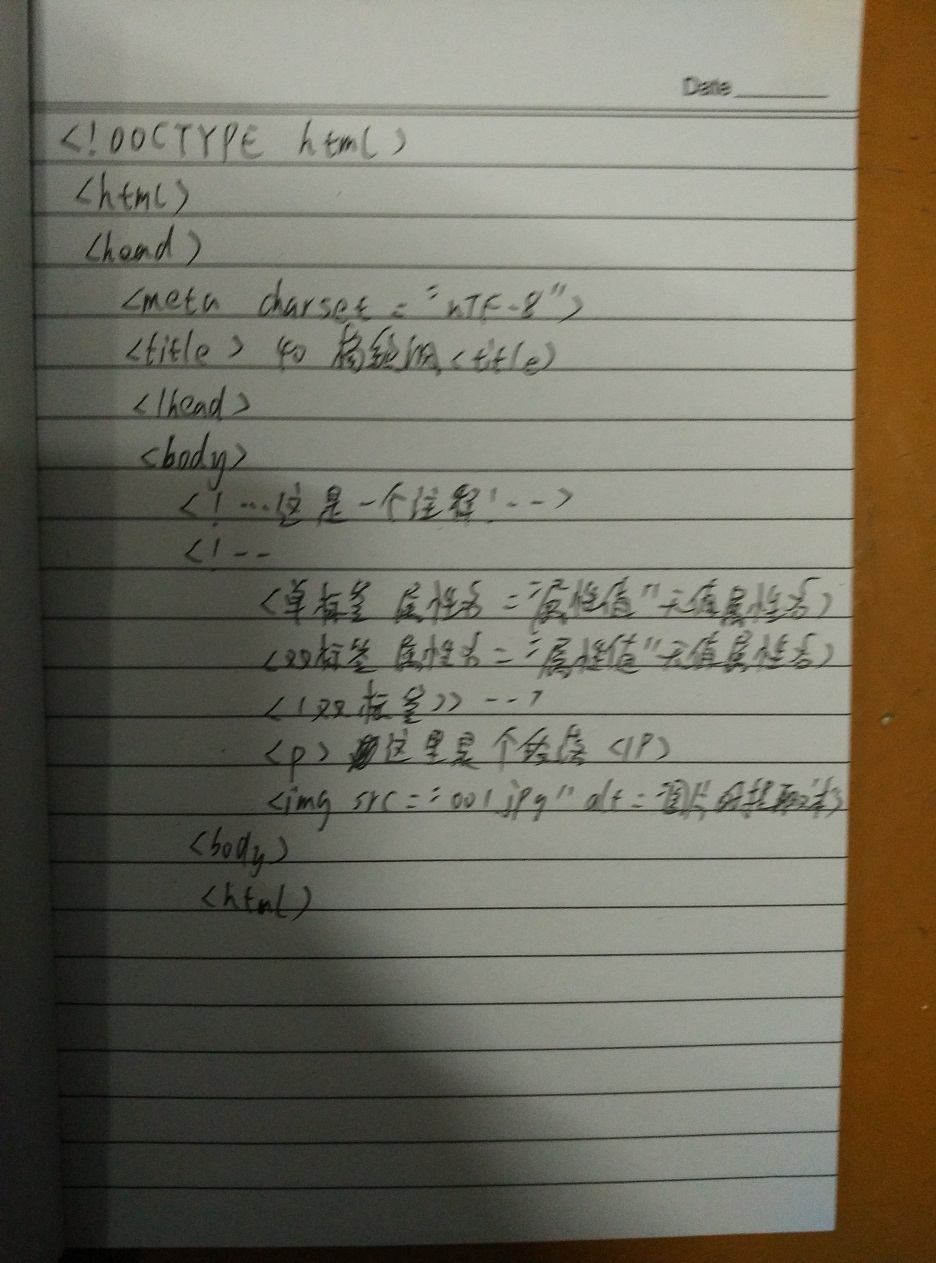 Date
<!DOCTYPE html>
<html>
<head>
<meta charset="UTF-8">
<title> <title>
</head>
<body>
<!--这是一个注释!-->
<!--
<单标签 属性名="属性值"无值属性名>
<双标签 属性名="属性值"无值属性名>
</双标签>> -->
<p> 这里是个 </p>
<img src="001.jpg" alt="图片的
<body>
<html>